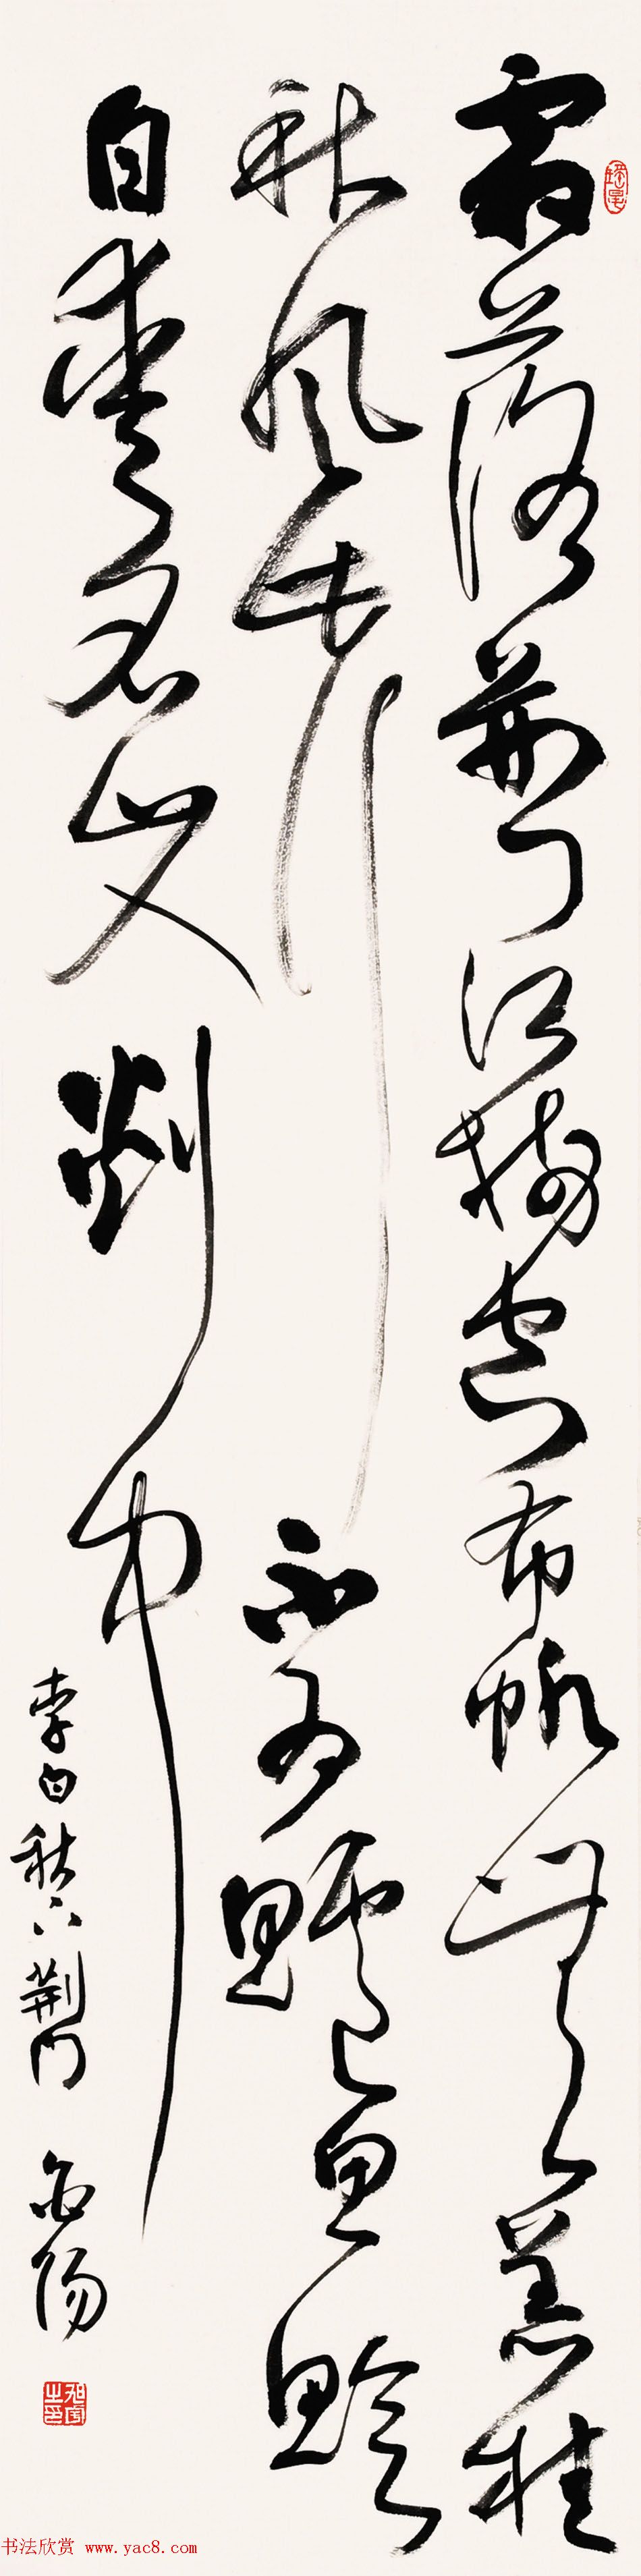 霜落荆门江树空布帆无恙挂
秋风此行不为鲈鱼鲙
自爱名山入剡中
李白秋下荆门 阳
旭宇之印
书法欣赏 www.yac8.com